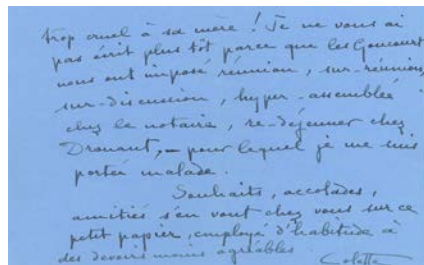 trop cruel à sa mère ! Je ne vous ai
pas écrit plus tôt parce que les Goncourt
nous ont imposé réunion, sur-réunion,
sur-discussion, hyper-assemblée
chez le notaire, re-déjeuner chez
Drouant, — pour lequel je me suis
portée malade.
Souhaits, accolades,
amitiés s'en vont chez vous sur ce
petit papier, employé d'habitude à
des devoirs moins agréables.
Colette